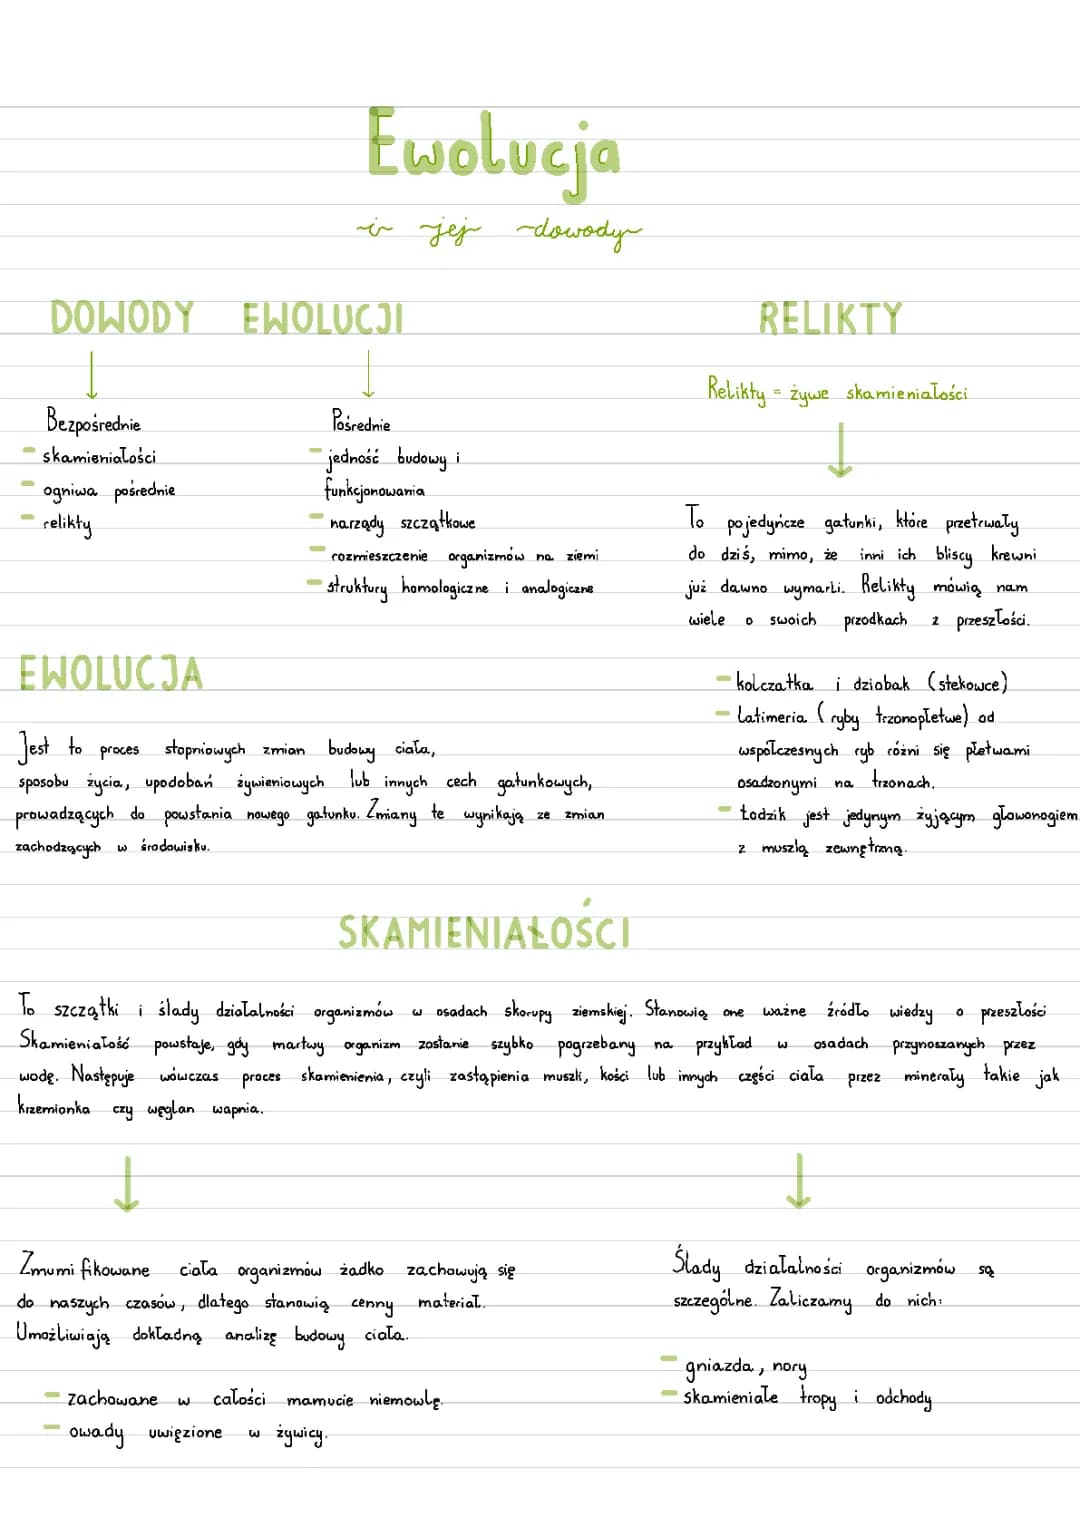 Ewolucja
i jej dowody
DOWODY EWOLUCJI
Bezpośrednie
- skamieniałości
- ogniwa pośrednie
- relikty
Pośrednie
- jedność budowy i
funkcjonowania
- narządy szczątkowe
- rozmieszczenie organizmów na ziemi
- struktury homologiczne i analogiczne
RELIKTY
Relikty = żywe skamieniałości
To pojedyńcze gatunki, które przetrwały
do dziś, mimo, że inni ich bliscy krewni
już dawno wymarli. Relikty mówią nam
wiele o swoich przodkach z przeszłości.
- kolczatka i dziobak (stekowce)
- latimeria (ryby trzonopłetwe) od
współczesnych ryb różni się płetwami
osadzonymi na trzonach.
- Łodzik jest jedynym żyjącym głowonogiem
z muszlą zewnętrzną.
EWOLUCJA
Jest to proces stopniowych zmian budowy ciała,
sposobu życia, upodobań żywieniowych lub innych cech gatunkowych,
prowadzących do powstania nowego gatunku. Zmiany te wynikają ze zmian
zachodzących w środowisku.
SKAMIENIAŁOŚCI
To szczątki i ślady działalności organizmów w osadach skorupy ziemskiej. Stanowią one ważne źródło wiedzy o przeszłości
Skamieniałość powstaje, gdy martwy organizm zostanie szybko pogrzebany na przykład w osadach przynoszanych przez
wodę. Następuje wówczas proces skamienienia, czyli zastąpienia muszli, kości lub innych części ciała przez minerały takie jak
krzemionka czy węglan wapnia.
Zmumifikowane ciała organizmów żadko zachowują się
do naszych czasów, dlatego stanowią cenny materiał.
Umożliwiają dokładną analizę budowy ciała.
- zachowane w całości mamucie niemowlę.
- owady uwięzione w żywicy.
Ślady działalności organizmów są
szczególne. Zaliczamy do nich:
- gniazda, nory
- skamieniałe tropy i odchody